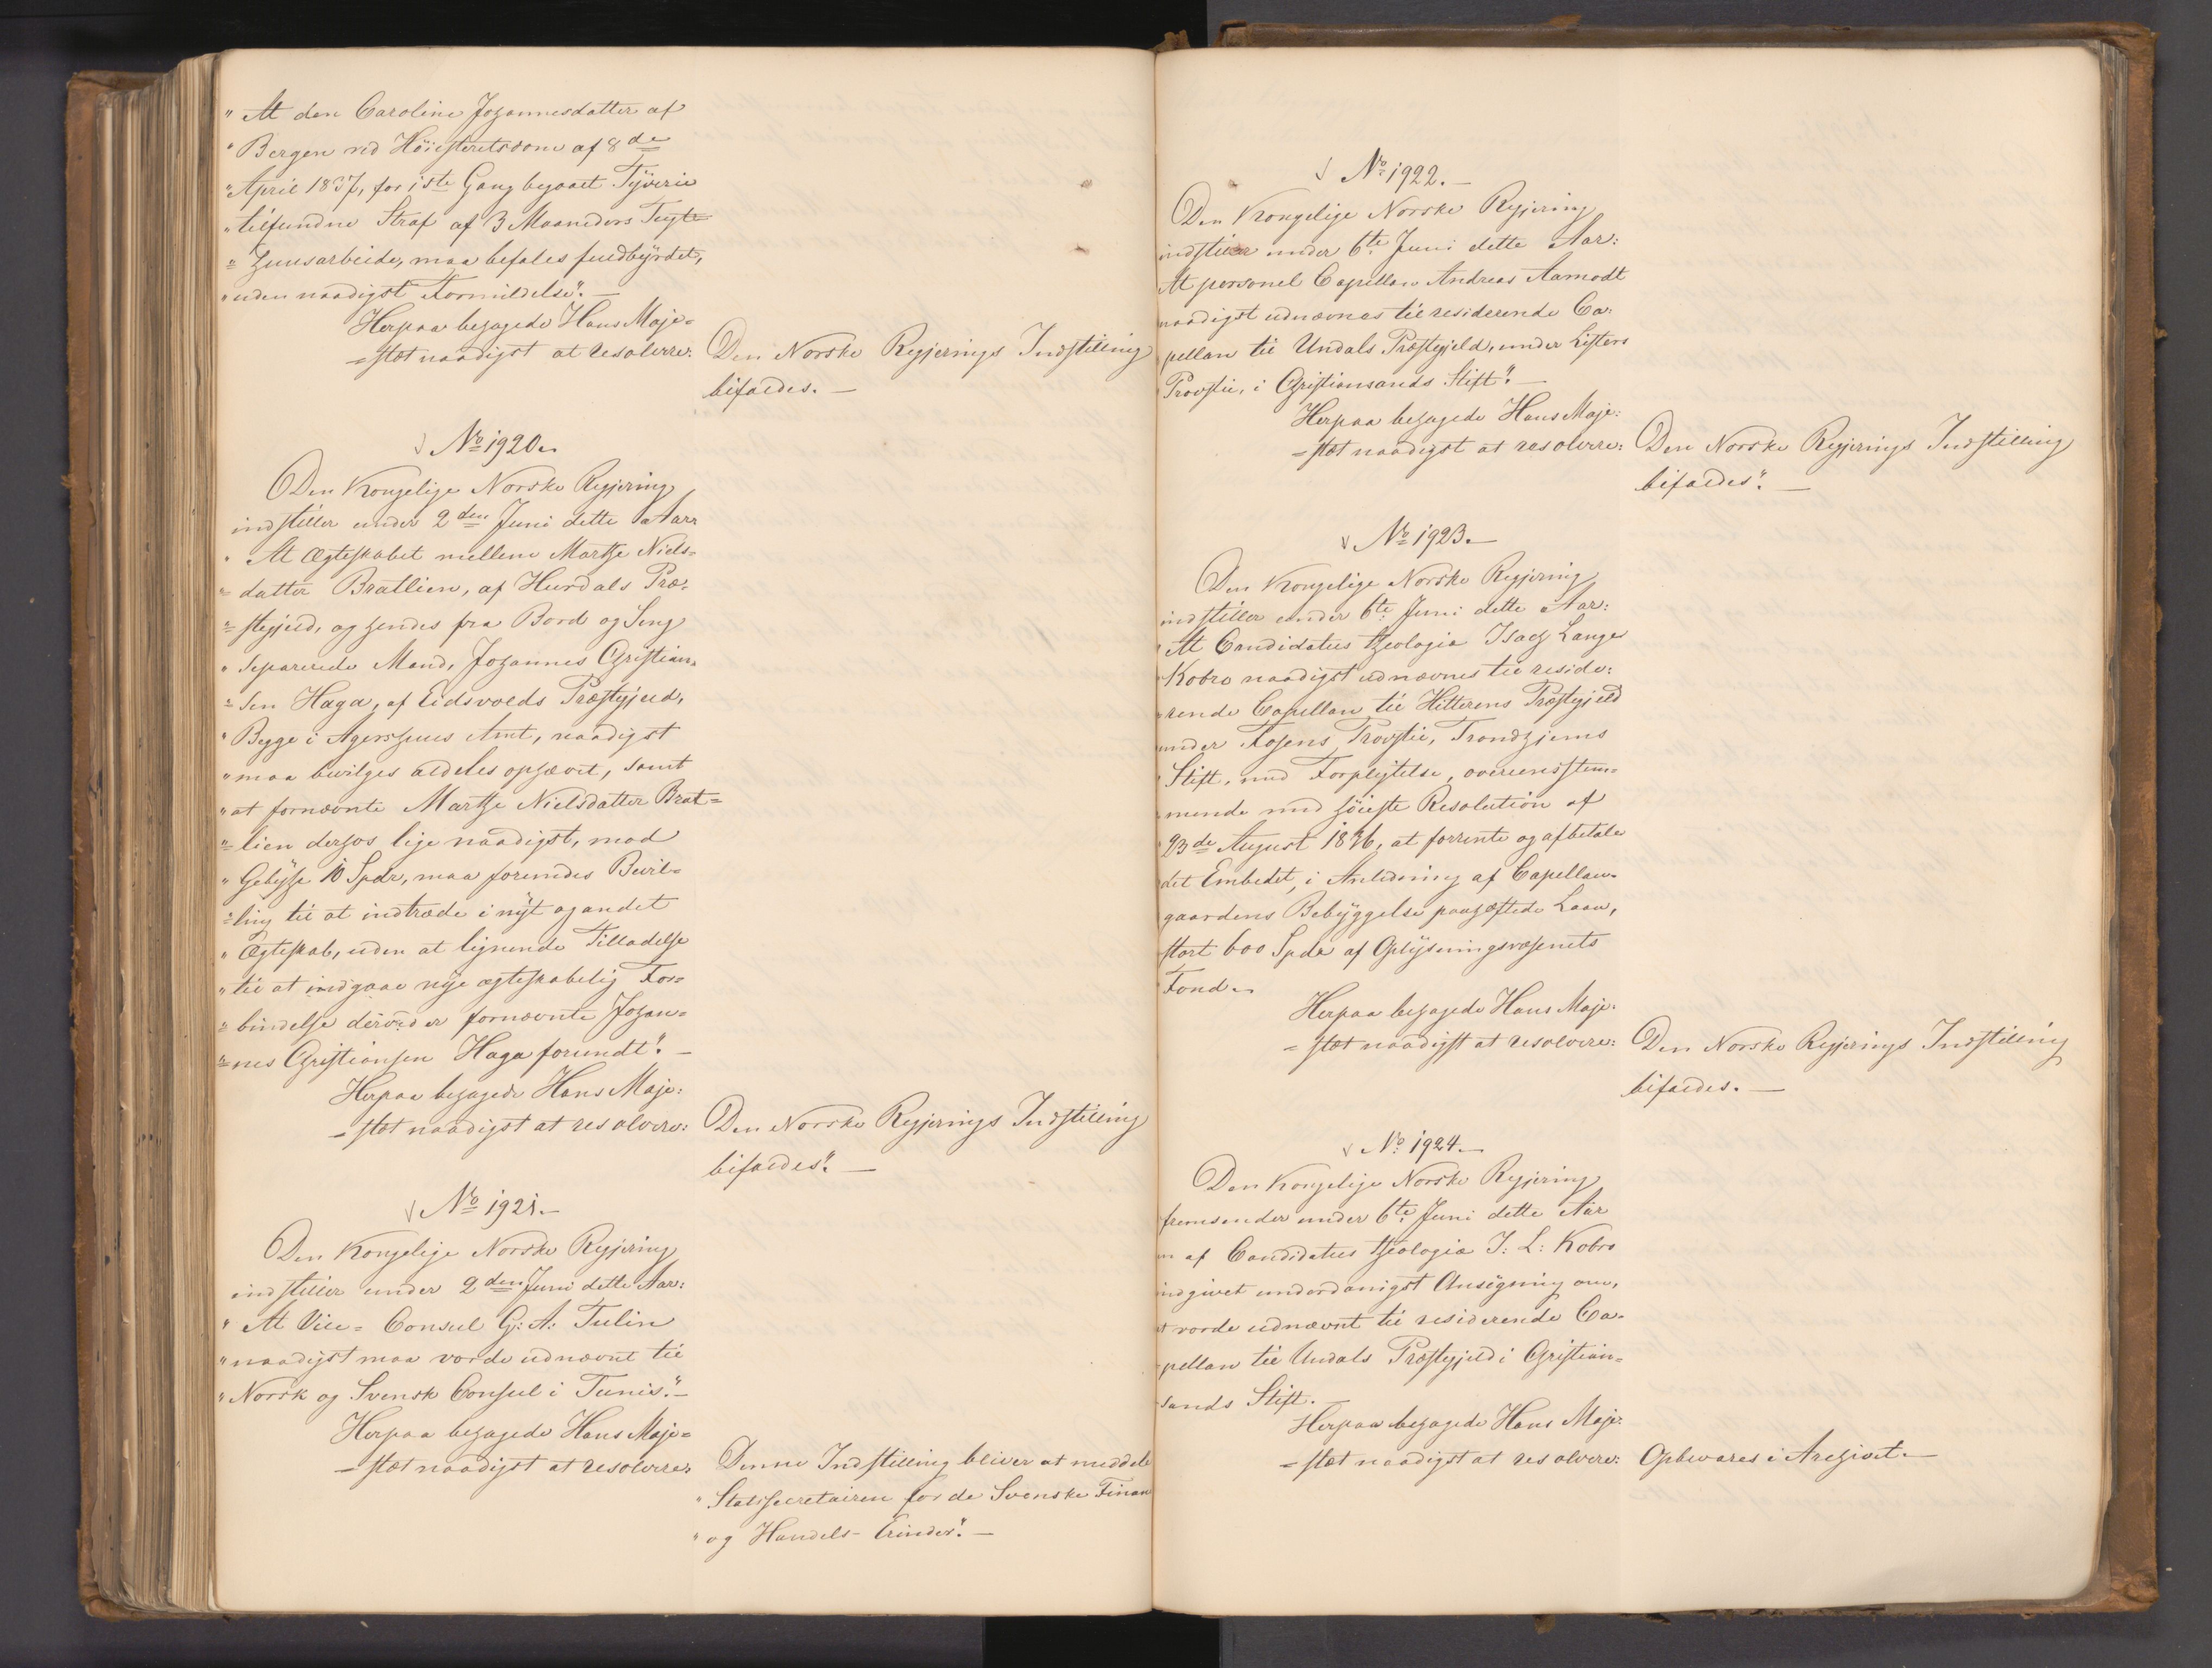 " At den Caroline Johannesdatter af
" Bergen ved Höiesteretsdom af 8de
" April 1837, for 1ste Gang begaaet Tÿverie
" tilfundne Straf af 3 Maaneders Tugt-
" huusarbeide, maa befales fuldbÿrdet,
" uden naadigst Formildelse". —
Herpaa behagede Hans Maje-
-stæt naadigst at resolvere:
Den Norske Regjerings Indstilling
bifaldes. —
No 1920.
Den Kongelige Norske Regjering
indstiller under 2den Juni dette Aar:
" At Ægteskabet mellem Marthe Niels-
" datter Bratlien, af Hurdals Præ-
" stegjeld, og hendes fra Bord og Seng
" separerede Mand, Johannes Christian-
" sen Haga, af Eidsvolds Præstegjeld,
" Begge i Agershuus Amt, naadigst
" maa bevilges aldeles ophævet, samt
" at fornævnte Marthe Nielsdatter Brat-
" lien derhos lige naadigst, mod
" Gebÿhr 10 Spdr, maa forundes Bevil-
" ling til at indtræde i nÿt og andet
" Ægteskab, uden at lignende Tilladelse
" til at indgaae nye ægteskabelig For-
" bindelse derved er fornævnte Johan-
" nes Christiansen Haga forundt". —
Herpaa behagede Hans Maje-
-stæt naadigst at resolvere:
Den Norske Regjerings Indstilling
bifaldes". —
No 1921. —
Den Kongelige Norske Regjering
indstiller under 2den Juni dette Aar:
" At Vice-Consul G: A: Tulin
" naadigst maa vorde udnævnt til
" Norsk og Svensk Consul i Tunis". —
Herpaa behagede Hans Maje-
-stæt naadigst at resolvere:
Denne Indstilling bliver at meddele
" Statssecretairen for de Svenske Finan
" og Handels-Erinder". —
No 1922. —
Den Kongelige Norske Regjering
indstiller under 6te Juni dette Aar:
At personel Capellan Andreas Aamodt
naadigst udnævnes til residerende Ca-
pellan til Undals Præstegjeld, under Listers
Provstie, i Christiansands Stift". —
Herpaa behagede Hans Maje-
-stæt naadigst at resolvere:
Den Norske Regjerings Indstilling
bifaldes". —
No 1923. —
Den Kongelige Norske Regjering
indstiller under 6te Juni dette Aar:
At Candidatus theologiæ Isach Lange
Kobro naadigst udnævnes til reside-
rende Capellan til Hitterens Præstegjeld
under Fosens Provstie, Trondhjems
Stift, med Forpligtelse, overeensstem-
mende med höieste Resolution af
23de August 1836, at forrente og afbetale
det Embedet, i Anledning af Capellan-
gaardens Bebÿggelse paahæftede Laan,
stort 600 Spdr af Oplÿsningsvæsenets
Fond.
Herpaa behagede Hans Maje-
-stæt naadigst at resolvere:
Den Norske Regjerings Indstilling
bifaldes. —
No 1924. —
Den Kongelige Norske Regjering
fremsender under 6te Juni dette Aar
en af Candidatus theologiæ I: L: Kobro
indgivet underdanigst Ansögning om,
at vorde udnævnt til residerende Ca-
pellan til Undals Præstegjeld i Christian-
sands Stift. —
Herpaa behagede Hans Maje-
-stæt naadigst at resolvere:
Opbevares i Archivet. —